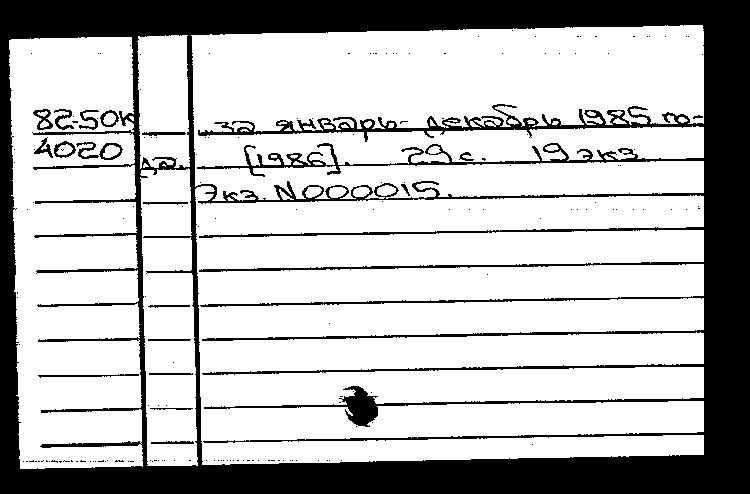 82-50к ...за январь-декабрь 1985 го-
4020 да. [1986]. 29 с. 19 экз
Экз. N000015.